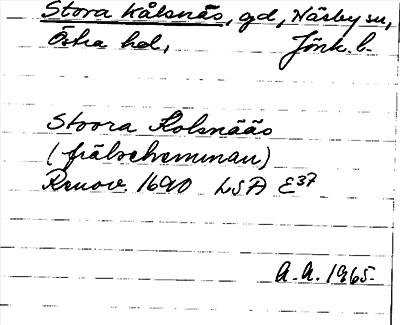 Stora Kålsnäs, gd, Näsby sn,
Östra hd, Jönk. l.
Stoora Kolsnääs
(frälsehemman)
Renov. 1690 LSA E37
A.A. 1965.